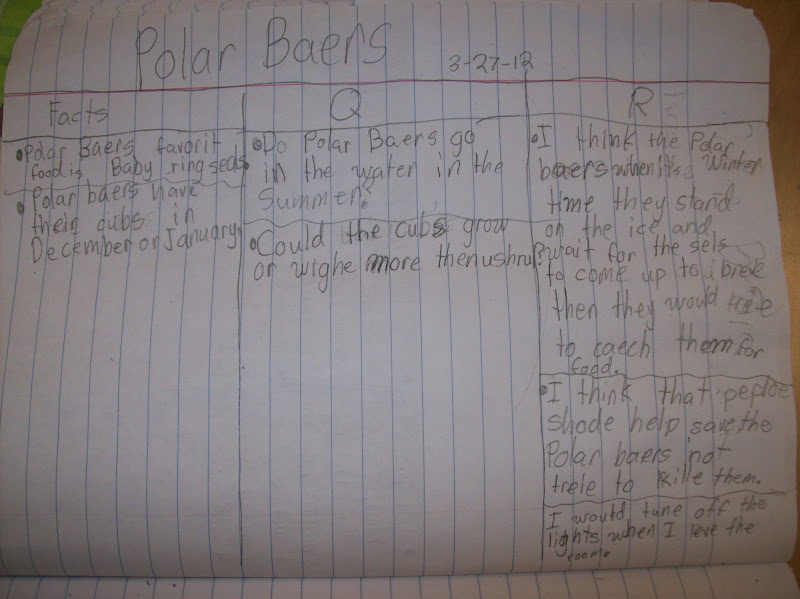 Polar Baers
3-27-12
Facts
•Polar Baers favorit
food is Baby ring seds.
•Polar baers have
their cubs in
December or January
Q
•Do Polar Baers go
in the water in the
Summer?
•Could the cubs grow
or wighe more then ushrul?
R
•I think the Polar
baers when it's Winter
time they stand
on the ice and
wait for the sels
to come up to breke
then they would treie
to caech them for
food.
•I think that peploe
shode help save the
Polar baers not
treie to kille them.
I would tune off the
lights when I leve the
room.